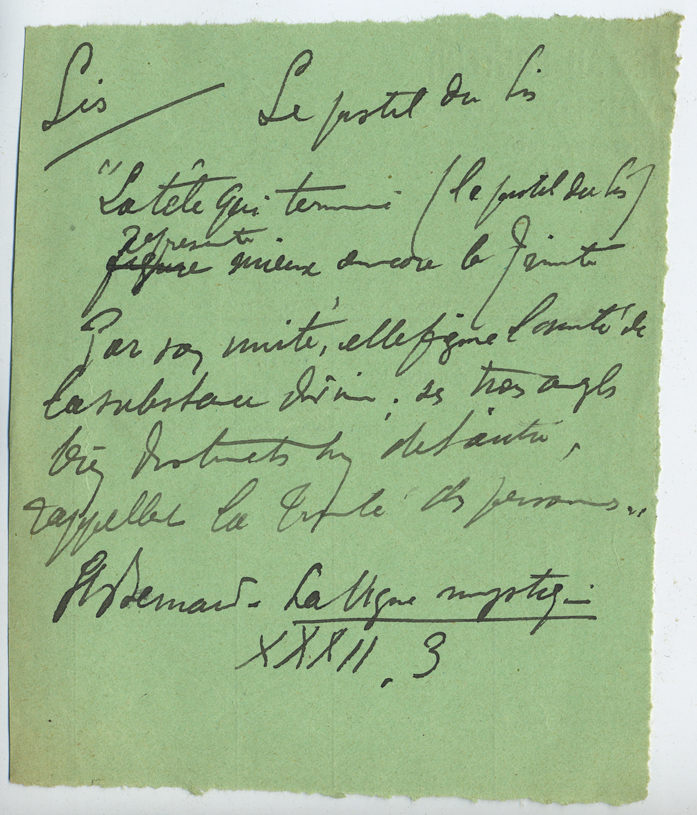 Lis Le pistil du lis
"La tête qui termine (le pistil du lis)
représente
figure mieux encore la Trinité
Par son unité, elle figure l'unité de
la substance divine; ses trois angles
bien distincts l'un de l'autre,
rappellent la Trinité des personnes..
St Bernard - La Vigne mystique
XXXII, 3